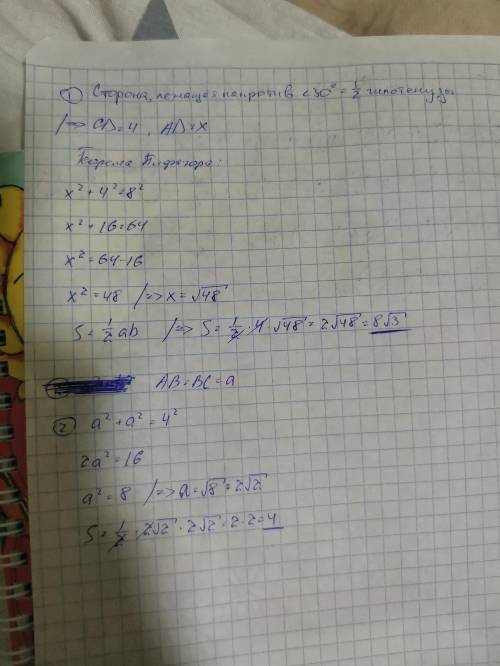 ① Сторона, лежащая напротив <30° = 1/2 гипотенузы
/=> CD=4, AD=x
Теорема Пифагора:
x²+4²=8²
x²+16=64
x²=64-16
x²=48 /=> x=√48
S=1/2ab /=> S=1/2·4·√48=2√48=8√3
AB=BC=a
② a²+a²=4²
2a²=16
a²=8 /=> a=√8=2√2
S=1/2·2√2·2√2=2·2=4